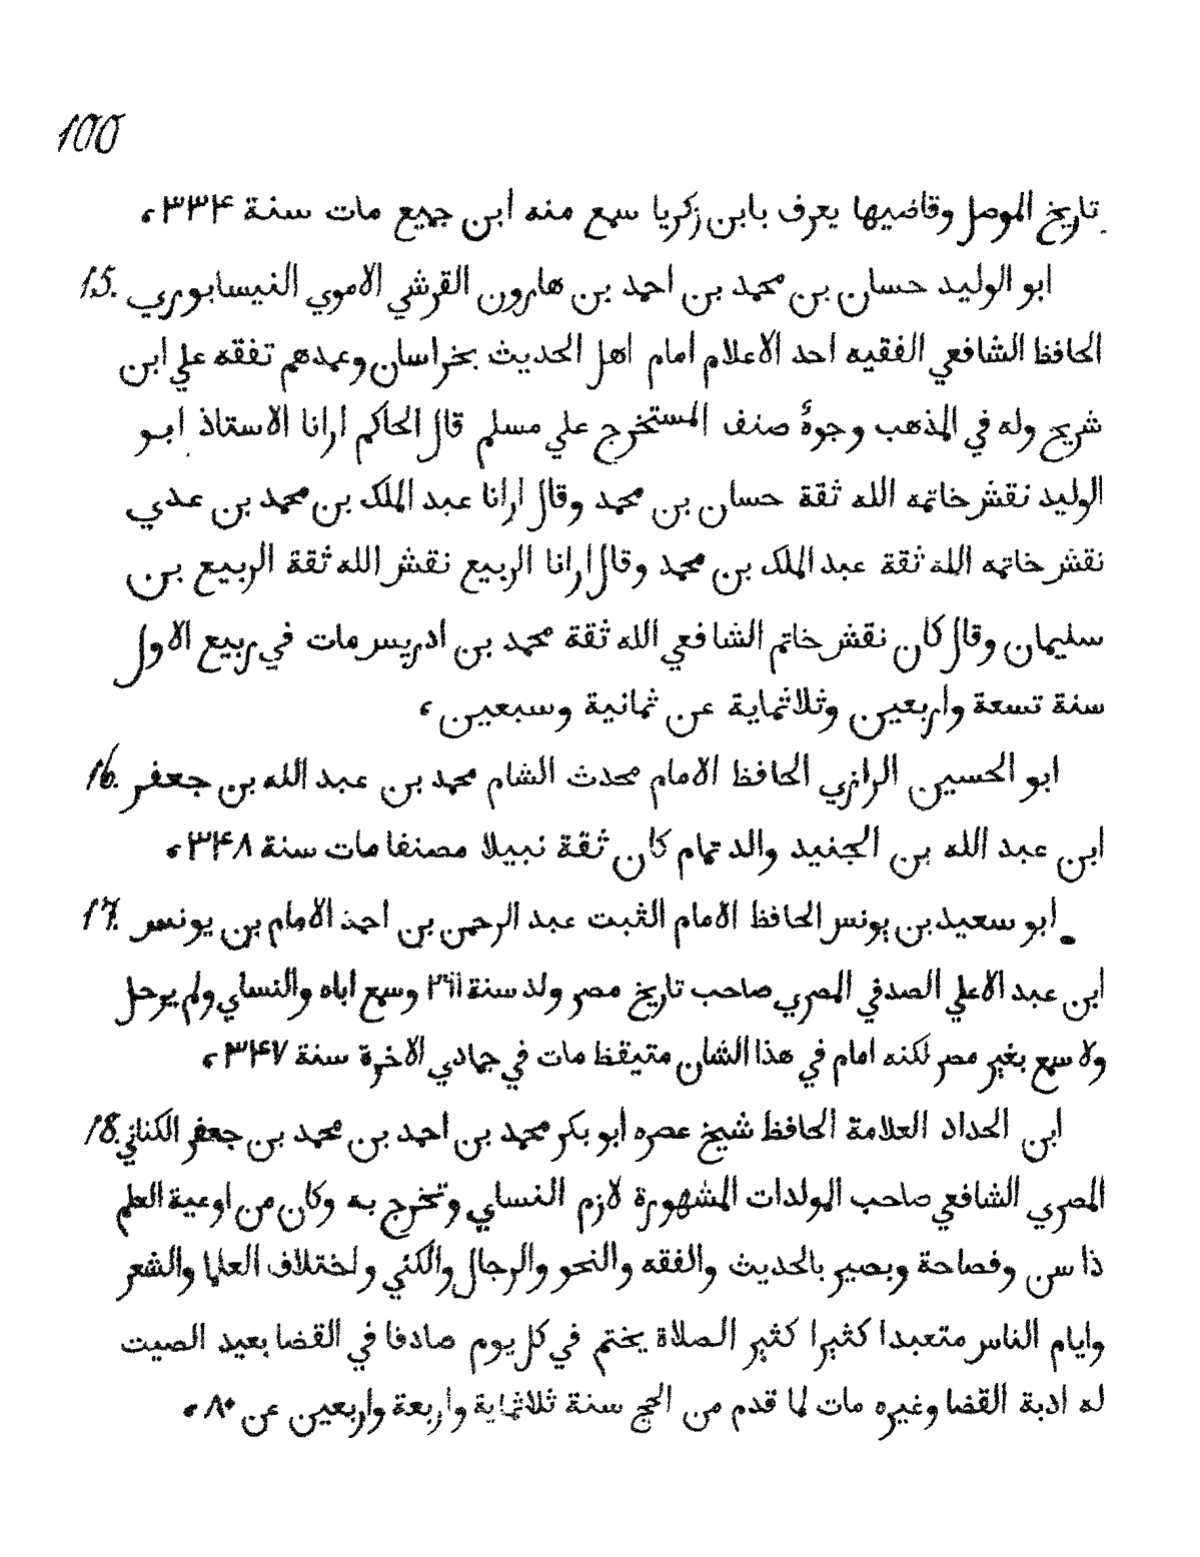 100
تاريخ الموصل وقاضيها يعرف بابن زكريا سمع منه ابن جميع مات سنة ٣٣۴،
15. ابو الوليد حسان بن محمد بن احمد بن هارون القرشي الاموي النيسابوري
الحافظ الشافعي الفقيه احد الاعلام امام اهل الحديث بخراسان وعمدهم تفقه علي ابن
شريح وله في المذهب وجوهٌ صنف المستخرج علي مسلم قال الحاكم ارانا الاستاذ ابو
الوليد نقش خاتمه الله ثقة حسان بن محمد وقال ارانا عبد الملك بن محمد بن عدي
نقش خاتمه الله ثقة عبد الملك بن محمد وقال ارانا الربيع نقش الله ثقة الربيع بن
سليمان وقال كان نقش خاتم الشافعي الله ثقة محمد بن ادريس مات في ربيع الاول
سنة تسعة واربعين وثلاثماية عن ثمانية وسبعين،
16. ابو الحسين الرازي الحافظ الامام محدث الشام محمد بن عبد الله بن جعفر
ابن عبد الله بن الجنيد والد تمام كان ثقة نبيلا مصنفا مات سنة ٣۴٨،
17. ابو سعيد بن يونس الحافظ الامام الثبت عبد الرحمن بن احمد الامام بن يونس
ابن عبد الاعلي الصدفي المصري صاحب تاريخ مصر ولد سنة وسمع اباه والنساي ولم يرحل
ولا سمع بغير مصر لكنه امام في هذا الشان متيقظ مات في جمادي الاخرة سنة ٣۴٧،
18. ابن الحداد العلامة الحافظ شيخ عصره ابو بكر محمد بن احمد بن محمد بن جعفر الكناني
المصري الشافعي صاحب المولدات المشهورة لازم النساي وتخرج به وكان من اوعية العلم
ذا سن وفصاحة وبصير بالحديث والفقه والنحو والرجال والكني واختلاف العلما والشعر
وايام الناس متعبدا كثيرا كثير الصلاة يختم في كل يوم صادفا في القضا بعيد الصيت
له ادبة القضا وغيره مات لما قدم من الحج سنة ثلاثماية واربعة واربعين عن ٨٠،